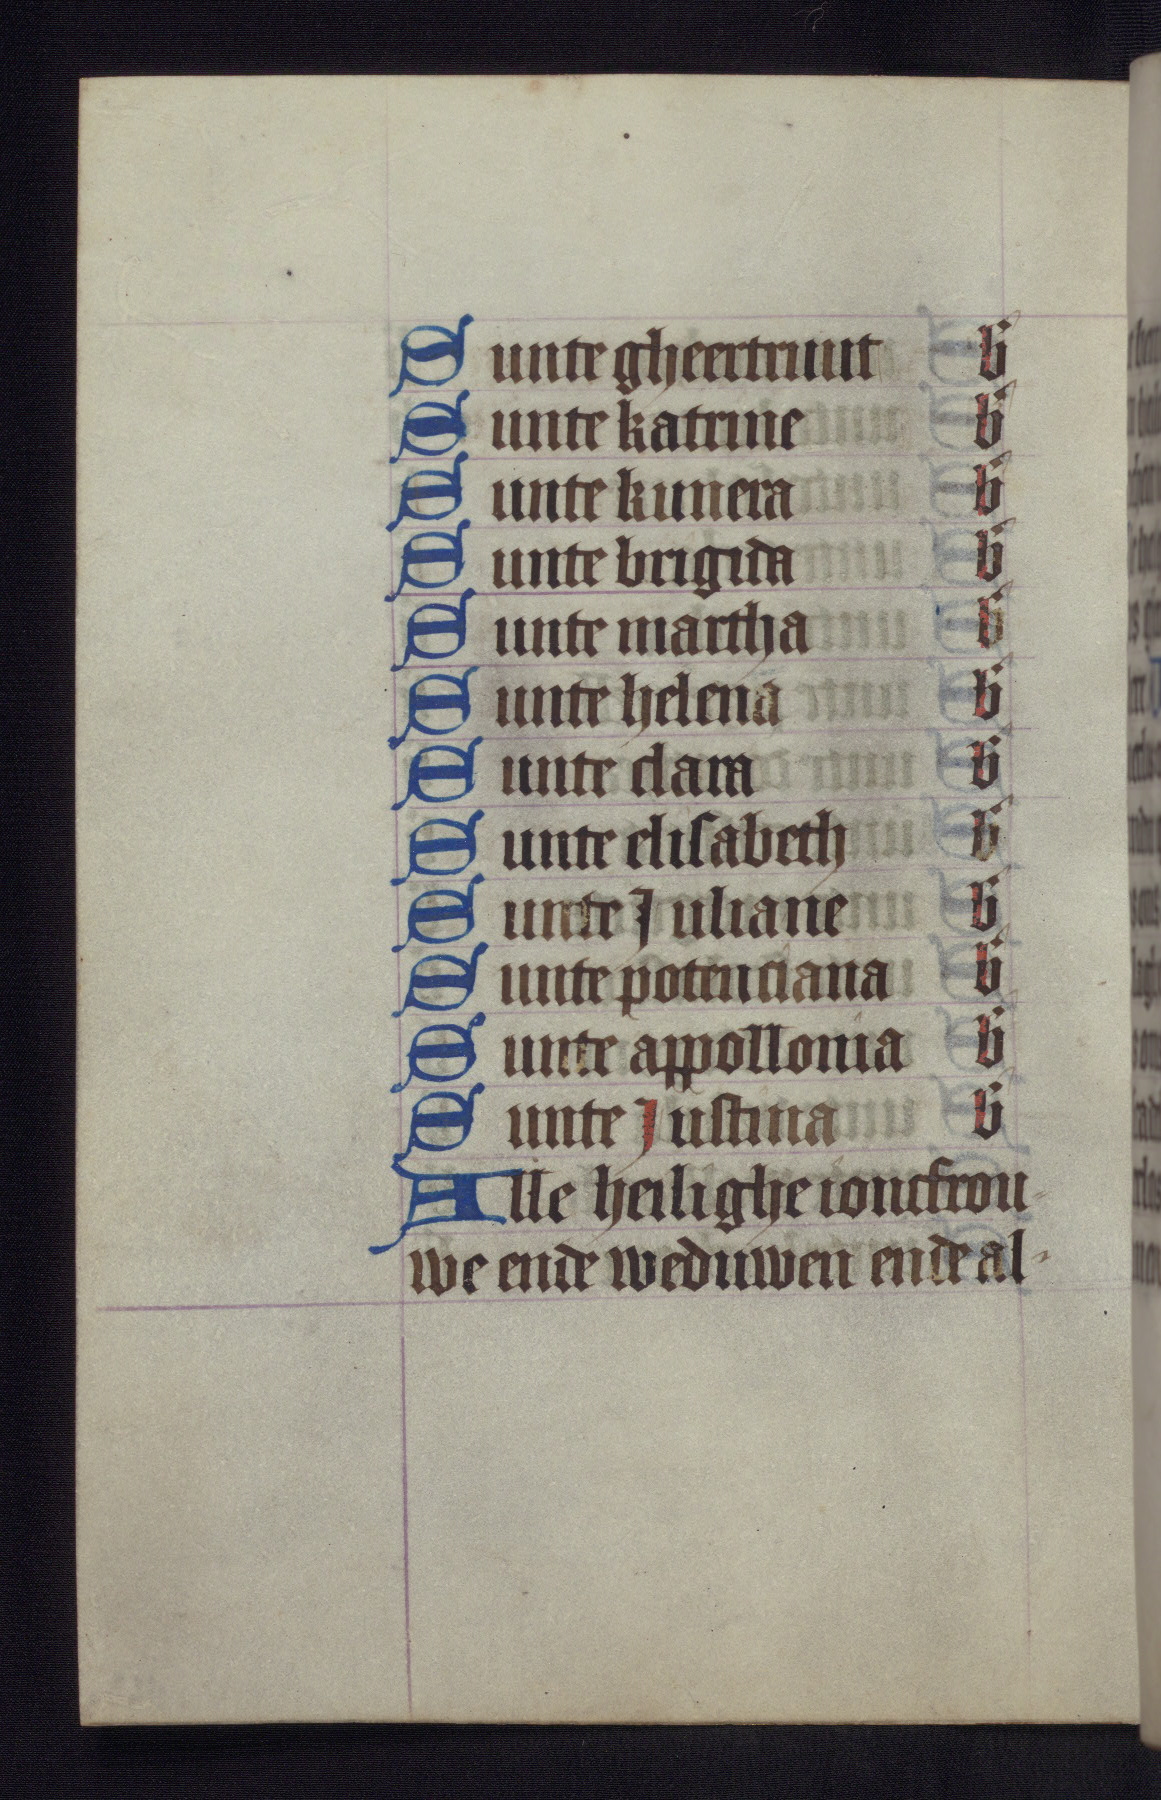 Sunte gheertruut b
Sunte katrine b
Sunte kunera b
Sunte brigida b
Sunte martha b
Sunte helena b
Sunte clara b
Sunte elisabeth b
Sunte Juliane b
Sunte potenciana b
Sunte appollonia b
Sunte Justina b
Alle heilighe ioncfrou-
we ende weduwen ende al-